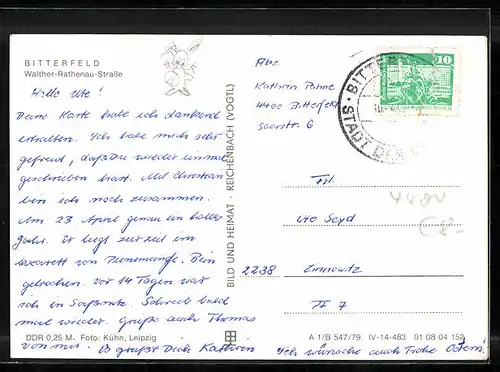 BITTERFELD
Walther-Rathenau-Straße
Hallo Ute!
Deine Karte habe ich dankend
erhalten. Ich habe mich sehr
gefreut, daß Du wieder einmal
geschrieben hast. Mit Christian
bin ich noch zusammen.
Am 23 April genau ein halbes
Jahr. Er liegt zur Zeit im
Lazarett von Peenemünde. Bein
gebrochen. Vor 14 Tagen war
ich in Saßnitz. Schreib bald
mal wieder. Grüße auch Thomas
von mir. Es grüßt Dich Kathrin
Ich wünsche auch Frohe Ostern!
DDR 0,25 M. Foto: Kühn, Leipzig
BILD UND HEIMAT · REICHENBACH (VOGTL)
Abs.
Kathrin
4400 Bitterfeld
Saarstr. 6
BITTERF
STADT DER
10
Frl.
Ute Seyd
2238 Zinnowitz
4400
€8,-
A 1/B 547/79 IV-14-483 01 08 04 152